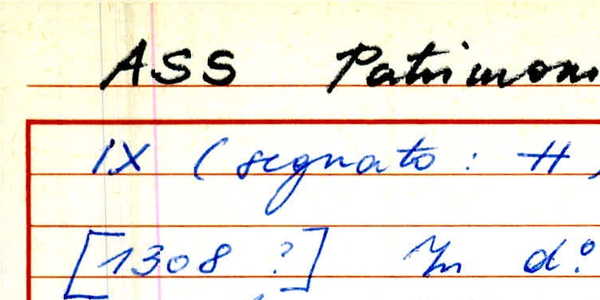 ASS Patrimoni
IX (segnato: H)
[1308 ?] In d:o